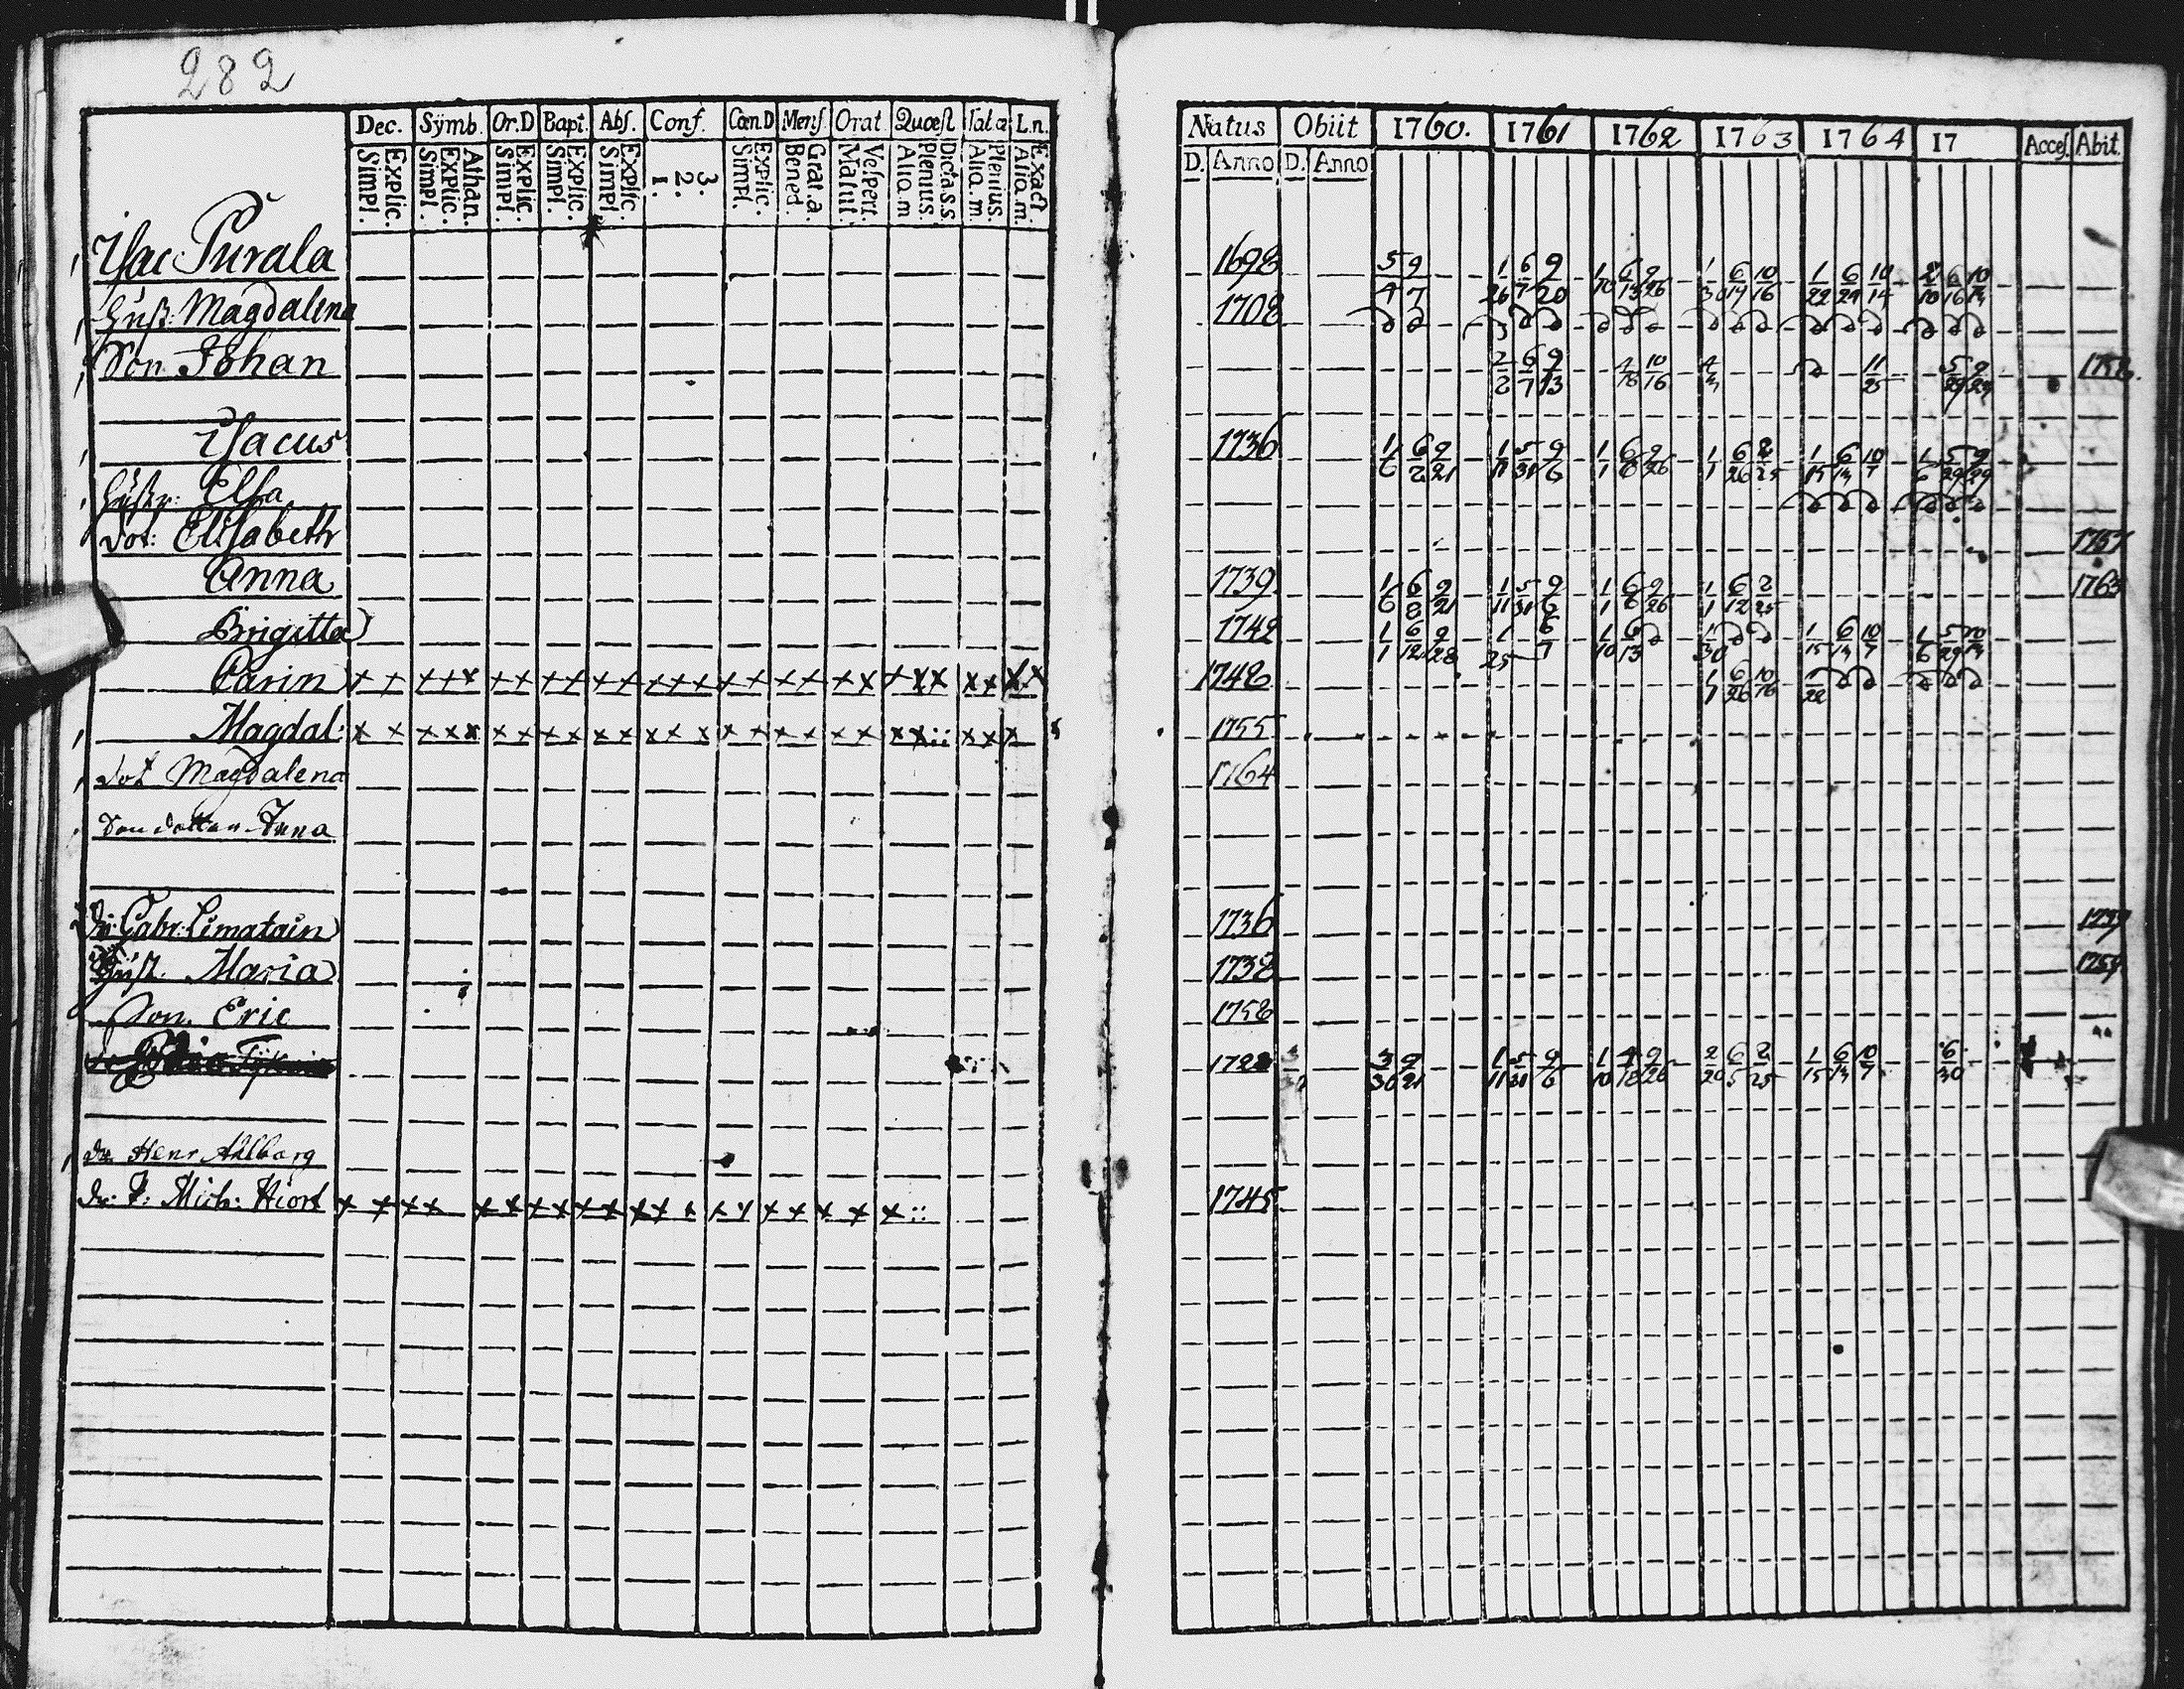 282
Dec. Sÿmb. Or.D Bapt. Abſ. Conf. Cœn.D Menſ Orat Quœſt Tab.œ L.n.
Simpl. Explic. Simpl. Explic. Athan. Simpl. Explic. Simpl. Explic. Simpl. Explic. 1. 2. 3. Simpl. Explic. Bened. Grat.a. Matut. Veſpert. Aliq.m Plenius. Dicta.s.s Aliq.m Plenius. Aliq.m. Exact.
Iſac Purala
Huſt: Magdalena
Son Johan
Iſacus
Huſtr: Elſa
Dot: Eliſabeth
Anna
Brigitta
Carin x x x x x x x x x x x x x x x x x x x x x x x x x x
Magdal: x x x x x x x x x x x x x x x x x x x x x :: x x x
Dot Magdalena
Anna
Dr: Gabr: Limatain
Huſt. Maria
Son. Eric
Dr Henr Ahlborg
Dr: J: Mich: Hiort x x x x x x x x x x x x x x x x x x x x ::
Natus Obiit 1760. 1761 1762 1763 1764 17 Acceſ. Abit.
D. Anno D. Anno
1698 5/4 9/7 1/26 6/7 9/20 1/10 6/13 9/26 1/30 6/14 10/16 1/22 6/24 10/14
1708
2/2 6/7 9/13 10/16 11/25 1758
1736 1/6 6/2 9/21 1/11 5/31 9/6 1/1 6/8 9/26 1/1 6/26 2/25 1/15 6/14 10/7 1/6 5/29 9/29
1757
1739 1/6 6/8 9/21 1/11 5/31 9/6 1/1 6/8 9/26 1/1 6/12 2/25 1763
1742 1/1 6/12 9/28 1/25 6/7 1/10 6/13 1/30 1/15 6/14 10/7 1/6 5/29 10/14
1748 1/1 6/26 10/16 1/22
1755
1764
1736 1759
1738 1759
1758
3/30 9/21 1/11 5/31 9/6 1/10 4/18 9/26 2/20 6/5 2/25 1/15 6/14 10/7 6/30
1745